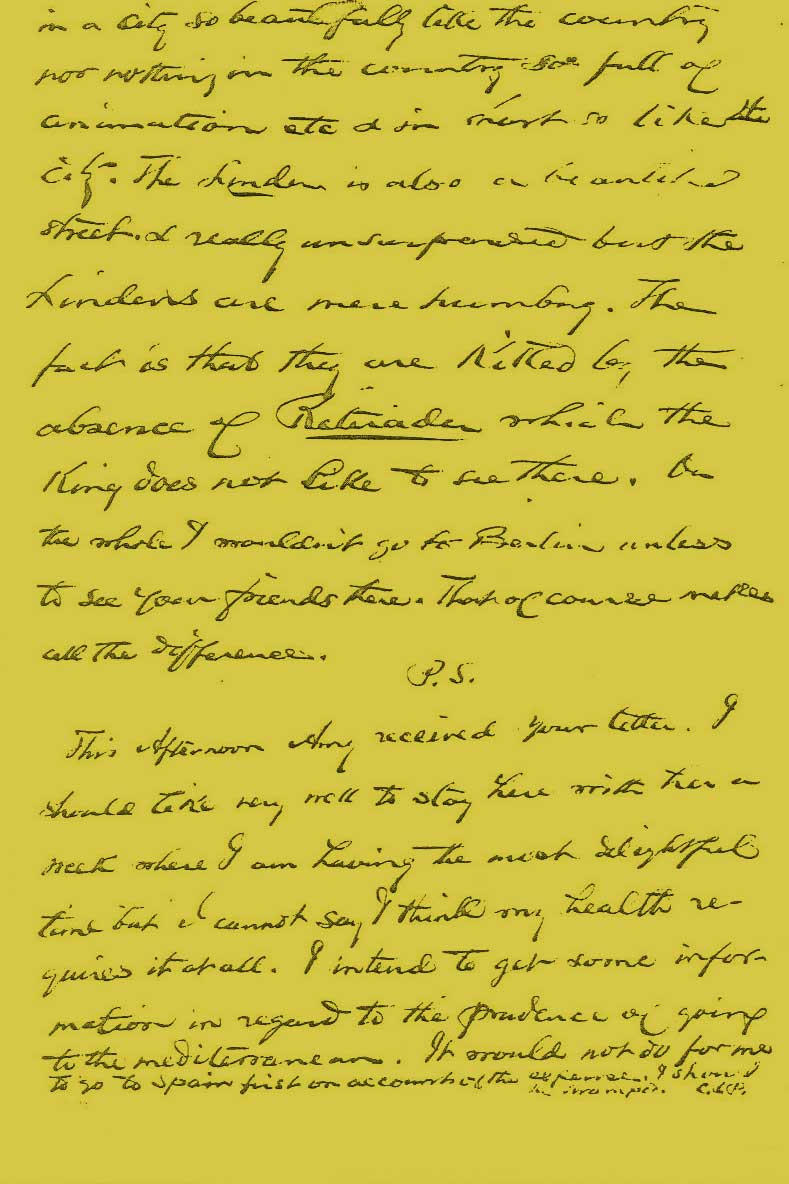 in a city so beautifully like the country
nor nothing in the country so full of
animation etc & in short so like the
City. The Linden is also a beautiful
street. & really unsurpassed but the
Lindens are mere humbug. The
fact is that they are killed by the
absence of Retiraden which the
King does not like to see there. On
the whole I wouldn't go to Berlin unless
to see your friends there. That of course makes
all the difference.
P.S.
This Afternoon Amy received your letter. I
should like very well to stay here with her a
week where I am having the most delightful
time but I cannot say I think my health re-
quires it at all. I intend to get some infor-
mation in regard to the prudence of going
to the mediterranean. It would not do for me
to go to Spain first on account of the expense. I should
be swamped. C.S.P.